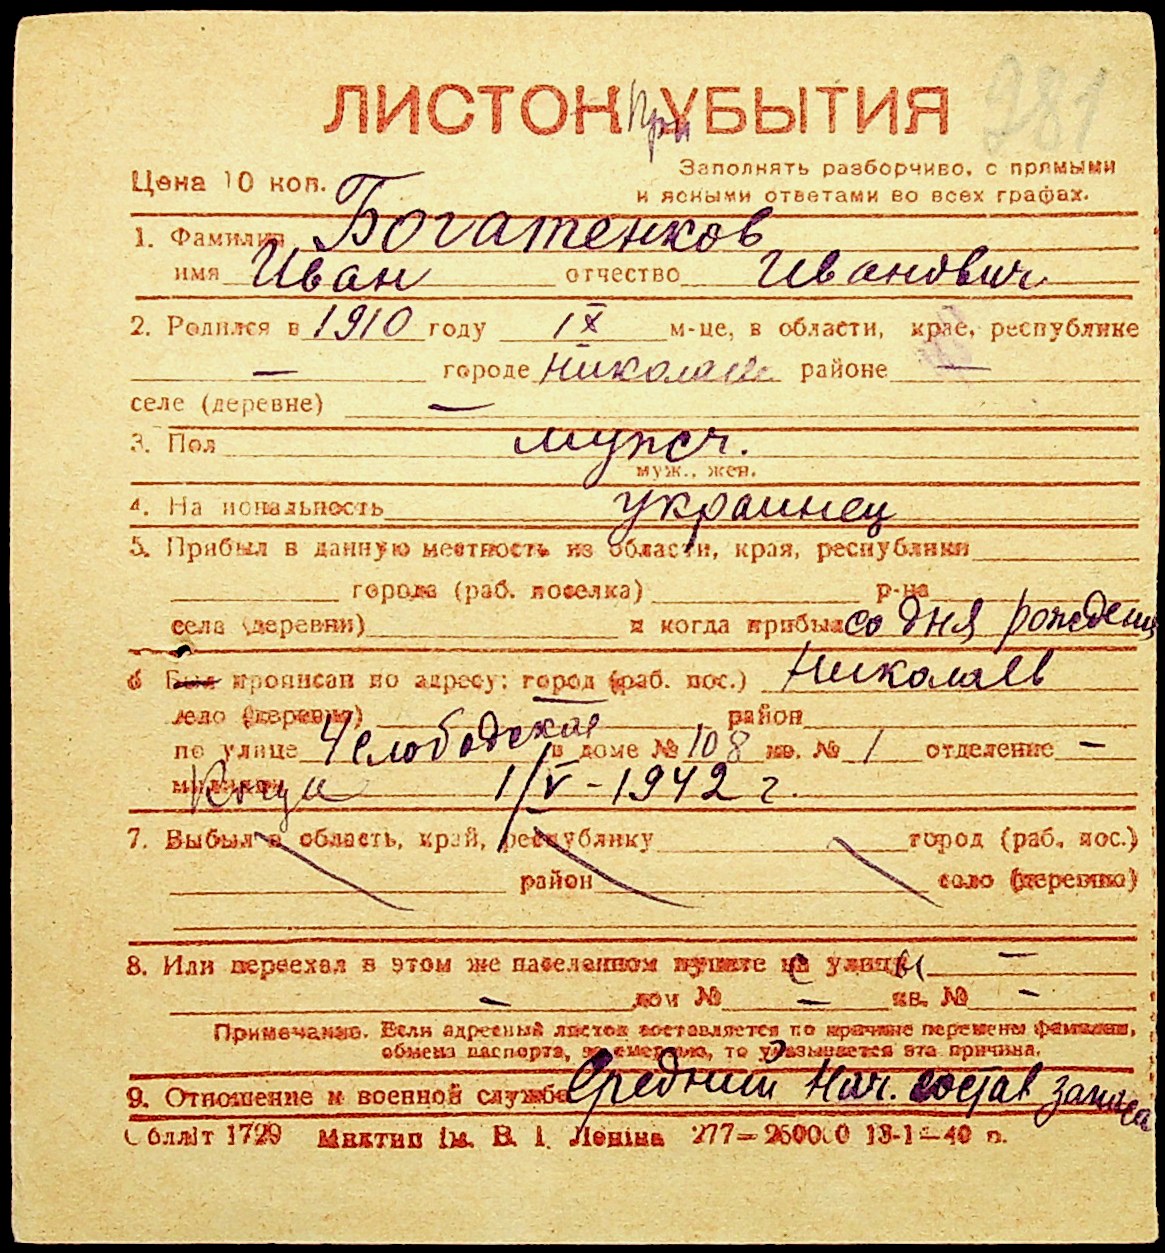 281
ЛИСТОК При УБЫТИЯ
Заполнять разборчиво, с прямыми
Цена 10 коп.
и ясными ответами во всех графах.
1. Фамилия Богатенков
имя Иван отчество Иванович
2. Родился в 1910 году IX м-це, в области, крае, республике
— городе Николаев районе —
селе (деревне) —
3. Пол мужч.
муж., жен.
4. Национальность украинец
5. Прибыл в данную местность из области, края, республики
города (раб. поселка) р-на
села (деревни) и когда прибыл со дня рождения
6 Был прописан по адресу: город (раб. пос.) Николаев
село (деревня) район
по улице 4 Слободская в доме № 108 кв. № 1 отделение —
милиции 1/V-1942 г.
7. Выбыл в область, край, республику город (раб. пос.)
район село (деревню)
8. Или переехал в этом же населенном пункте с улицы —
— дом № — кв. № —
Примечание. Если адресный листок составляется по причине перемены фамилии,
обмена паспорта, за смертью, то указывается эта причина.
9. Отношение к военной службе Средний нач. состав запаса
Облліт 1729 Миктип ім. В. І. Леніна 277—260000 13-1—40 р.